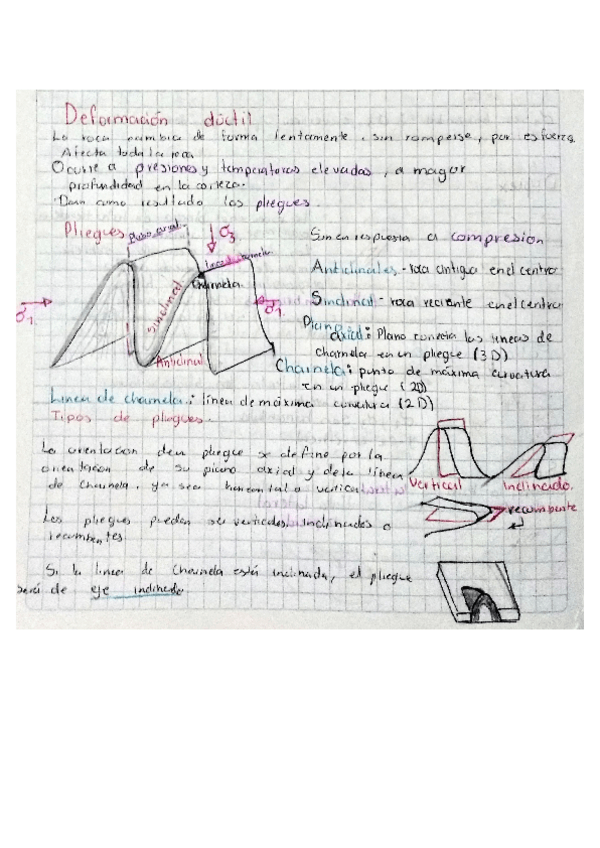 Deformación dúctil
La roca cambia de forma lentamente, sin romperse, por esfuerzo
Afecta toda la roca
Ocurre a presiones y temperaturas elevadas, a mayor
profundidad en la corteza.
Dan como resultado los pliegues.
Pliegues
Plano axial
σ3
Linea de charnela
Charnela
Sinclinal
Anticlinal
σ1
σ1
en respuesta a compresion
Anticlinales - roca antigua en el centro
Sinclinal - roca reciente en el centro
Plano
axial: Plano conecta las lineas de
charnela en un pliegue (3D)
Charnela: punto de máxima curvatura
en un pliegue (2D)
Linea de charnela: línea de máxima curvatura (2D)
Tipos de pliegues.
La orientación de un pliegue se define por la
orientación de su plano axial y de la línea
de charnela, ya sea horizontal o vertical
Los pliegues pueden ser verticales, inclinados o
recumbentes
Vertical
Inclinado.
recumbente
Si la linea de charnela está inclinada, el pliegue
será de eje inclinado